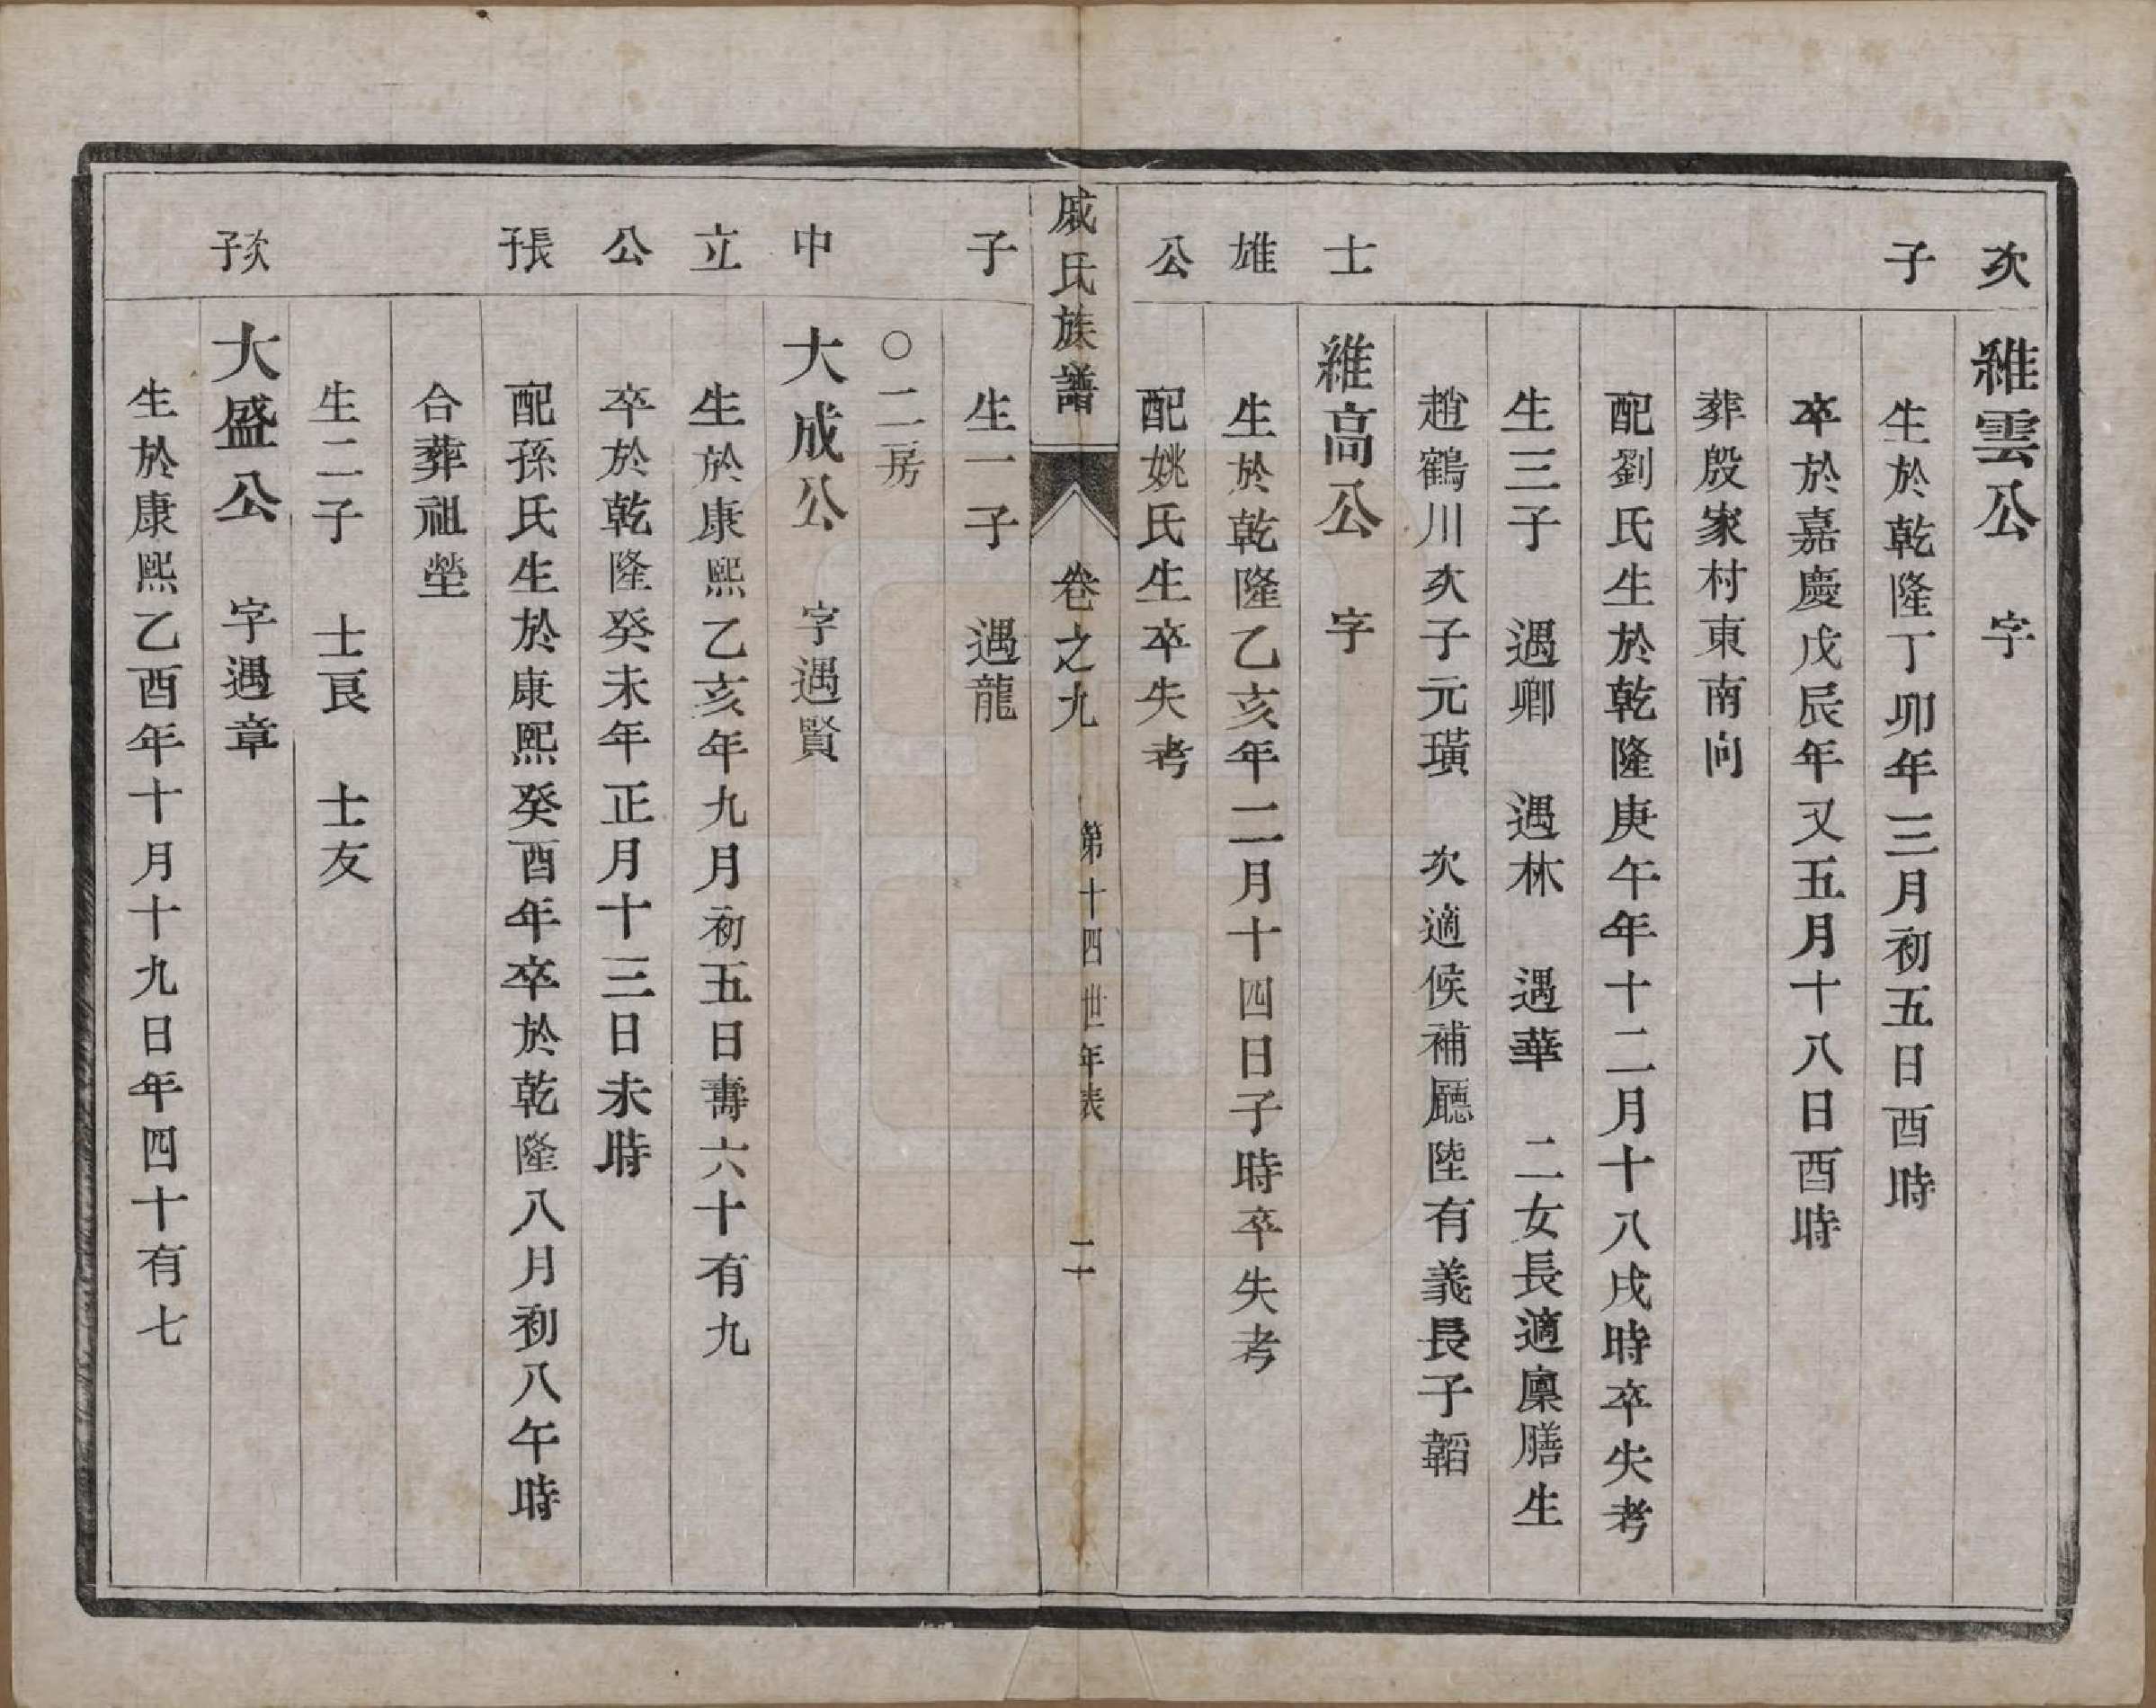 次
子
士
雄
公
維雲公　字
生於乾隆丁卯年三月初五日酉時
卒於嘉慶戊辰年又五月十八日酉時
葬殷家村東南向
配劉氏生於乾隆庚午年十二月十八戌時卒失考
生三子　遇卿　遇林　遇華　二女長適廩膳生
趙鶴川次子元璜　次適候補廳陸有義長子韜
維高公　字
生於乾隆乙亥年二月十四日子時卒失考
配姚氏生卒失考
戚氏族譜　卷之九　第十四世年表　二
子
中
立
公
長子
次子
生一子　遇龍
○二房
大成公　字遇賢
生於康熙乙亥年九月初五日壽六十有九
卒於乾隆癸未年正月十三日未時
配孫氏生於康熙癸酉年卒於乾隆八月初八午時
合葬祖塋
生二子　士良　士友
大盛公　字遇章
生於康熙乙酉年十月十九日年四十有七